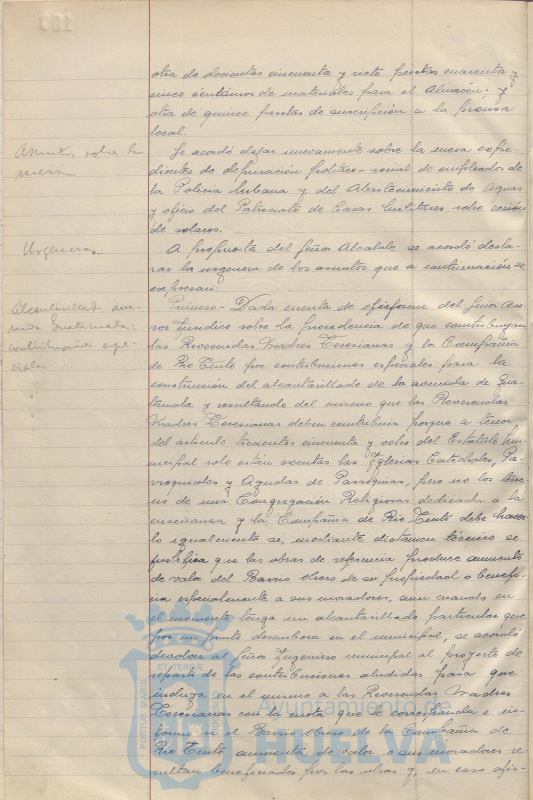 otra de doscientas cincuenta y siete pesetas cuarenta y
cinco céntimos de materiales para el Almacén. y
otra de quince pesetas de suscripción a la prensa
local.
Asuntos sobre la
mesa
Se acordó dejar nuevamente sobre la mesa expe-
dientes de depuración político-social de empleados de
la Policía Urbana y del Abastecimiento de Aguas
y oficio del Patronato de Casas Militares sobre cesión
de solares.
Urgencias.
A propuesta del Señor Alcalde se acordó decla-
rar la urgencia de los asuntos que a continuación se
expresan:
Alcantarillado ave-
nida Guatemala:
contribuciones espe-
ciales.
Primero.- Dada cuenta de informe del Señor Ase-
sor Jurídico sobre la procedencia de que contribuyan
las Reverendas Madres Teresianas y la Compañía
de Rio Tinto por contribuciones especiales para la
construcción del alcantarillado de la avenida de Gua-
temala y resultando del mismo que las Reverendas
Madres Teresianas deben contribuir porque a tenor
del artículo trescientos cincuenta y ocho del Estatuto Mu-
nicipal solo están exentas las Iglesias Catedrales, Pa-
rroquiales y Ayudas de Parroquias, pero no los
de una Congregación Religiosa dedicada a la
enseñanza y la Compañía de Rio Tinto debe hacer-
lo igualmente si, mediante dictamen técnico se
justifica que las obras de referencia produce aumento
de valor del Barrio Obrero de su propiedad o benefi-
cia especialmente a sus moradores, aun cuando en
el momento tenga un alcantarillado particular que
por un punto desemboca en el municipal, se acordó
devolver al Señor Ingeniero municipal el proyecto de
reparto de las contribuciones aludidas para que
incluya en el mismo a las Reverendas Madres
Teresianas con la cuota que le corresponda e in-
forme si el Barrio Obrero de la Compañía de
Rio Tinto aumenta de valor o sus moradores re-
sultan beneficiados por las obras y, en caso afir-
PORTUS MARIS
ET TERRAE
Ayuntamiento de
HUELVA